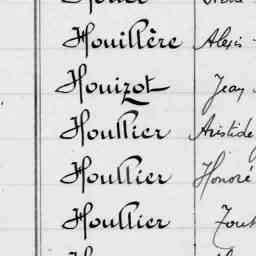 Houillère Alexis
Houizot Jean
Houllier Aristide
Houllier Honoré
Houllier